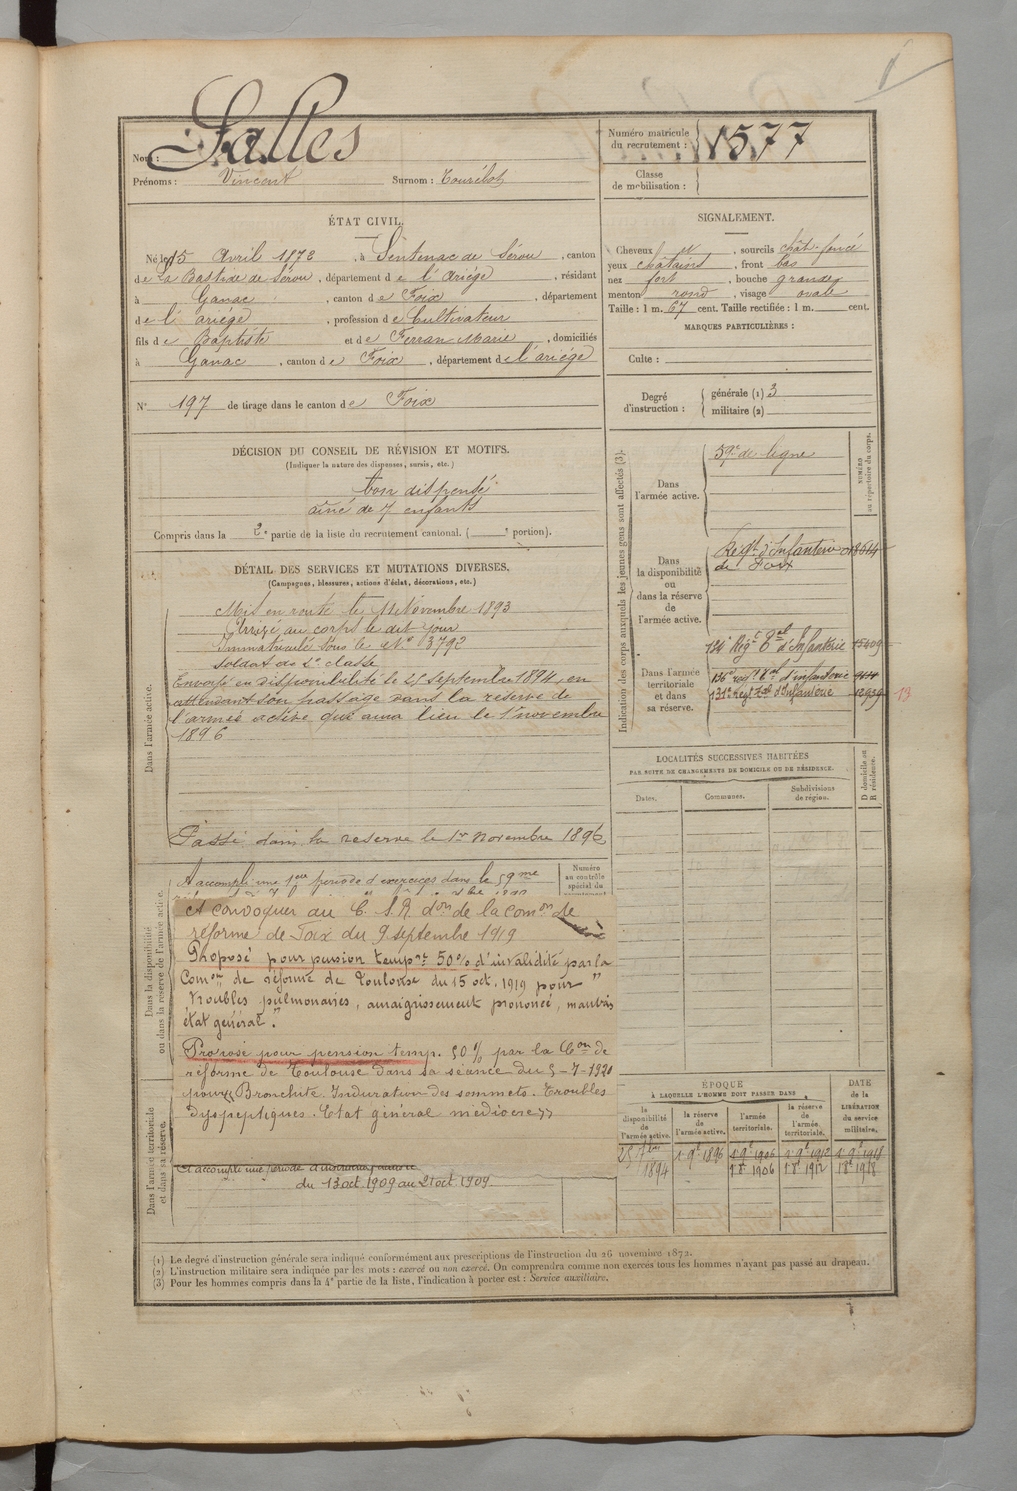 Nom : Salles
Prénoms : Vincent Surnom : Tourélot
Numéro matricule
du recrutement : 1577
Classe
de mobilisation :
ÉTAT CIVIL.
Né le 15 Avril 1872, à Sentenac de Sérou, canton
de La Bastide de Sérou, département de l'Ariége, résidant
à Ganac, canton de Foix, département
de l'ariége, profession de Cultivateur
fils de Baptiste et de Ferran Marie, domiciliés
à Ganac, canton de Foix, département de l'ariége
N° 197 de tirage dans le canton de Foix
SIGNALEMENT.
Cheveux et, sourcils chât. foncé
yeux châtains, front bas
nez fort, bouche grande
menton rond, visage ovale
Taille : 1 m. 67 cent. Taille rectifiée : 1 m. cent.
MARQUES PARTICULIÈRES :
Culte :
Degré
d'instruction :
générale (1) 3
militaire (2)
DÉCISION DU CONSEIL DE RÉVISION ET MOTIFS.
(Indiquer la nature des dispenses, sursis, etc.)
bon dispensé
aîné de 7 enfants
Compris dans la 2e partie de la liste du recrutement cantonal. ( e portion).
DÉTAIL DES SERVICES ET MUTATIONS DIVERSES.
(Campagnes, blessures, actions d'éclat, décorations, etc.)
Dans l'armée active.
Mis en route le 11 Novembre 1893
Arrivé au corps le dit jour
Immatriculé sous le N° 3792
soldat de 2e classe
Envoyé en disponibilité le 25 septembre 1894, en
attendant son passage dans la réserve de
l'armée active qui aura lieu le 1er novembre
1896
Passé dans la reserve le 1er novembre 1896
Dans la disponibilité
ou dans la réserve de l'armée active.
A accompli une 1ere période d'exercices dans le 59me
Numéro
au contrôle
spécial du
A convoquer au C. S. R don de la Comon de
réforme de Foix du 9 septembre 1919
Proposé pour pension tempre 50% d'invalidité par la
Comon de réforme de Toulouse du 15 oct. 1919 pour "
troubles pulmonaires, amaigrissement prononcé, mauvais
état général".
Proposé pour pension temp. 50% par la Con de
réforme de Toulouse dans sa séance du 5-7-1920
pour « Bronchite. Induration des sommets. Troubles
dyspeptiques. Etat général médiocre »
Dans l'armée territoriale
et dans sa réserve.
A accompli une période d'
du 13 oct 1909 au 21 oct 1909.
Indication des corps auxquels les jeunes gens sont affectés (3).
NUMÉRO
au répertoire du corps.
Dans
l'armée active.
59e de ligne
Dans
la disponibilité
ou
dans la réserve
de
l'armée active.
Régt d'Infanterie
de Foix
Dans l'armée
territoriale
et dans
sa réserve.
134e Régt Tal d'Infanterie 15409
136e régt Tal d'infanterie
131e Régt Tal d'Infanterie 12959 13
LOCALITÉS SUCCESSIVES HABITÉES
PAR SUITE DE CHANGEMENTS DE DOMICILE OU DE RÉSIDENCE.
Dates. Communes. Subdivisions
de région.
D domicile ou
R résidence.
ÉPOQUE
À LAQUELLE L'HOMME DOIT PASSER DANS
la
disponibilité
de
l'armée active.
la réserve
de
l'armée active.
l'armée
territoriale.
la réserve
de
l'armée
territoriale.
DATE
de la
LIBÉRATION
du service
militaire.
25 7bre
1894
1 9e 1896
1 9e 1906
1 8e 1906
1 9e 1912
1 8e 1912
1 9e 1918
1 8e 1918
(1) Le degré d'instruction générale sera indiqué conformément aux prescriptions de l'instruction du 26 novembre 1872.
(2) L'instruction militaire sera indiquée par les mots : exercé ou non exercé. On comprendra comme non exercés tous les hommes n'ayant pas passé au drapeau.
(3) Pour les hommes compris dans la 4e partie de la liste, l'indication à porter est : Service auxiliaire.